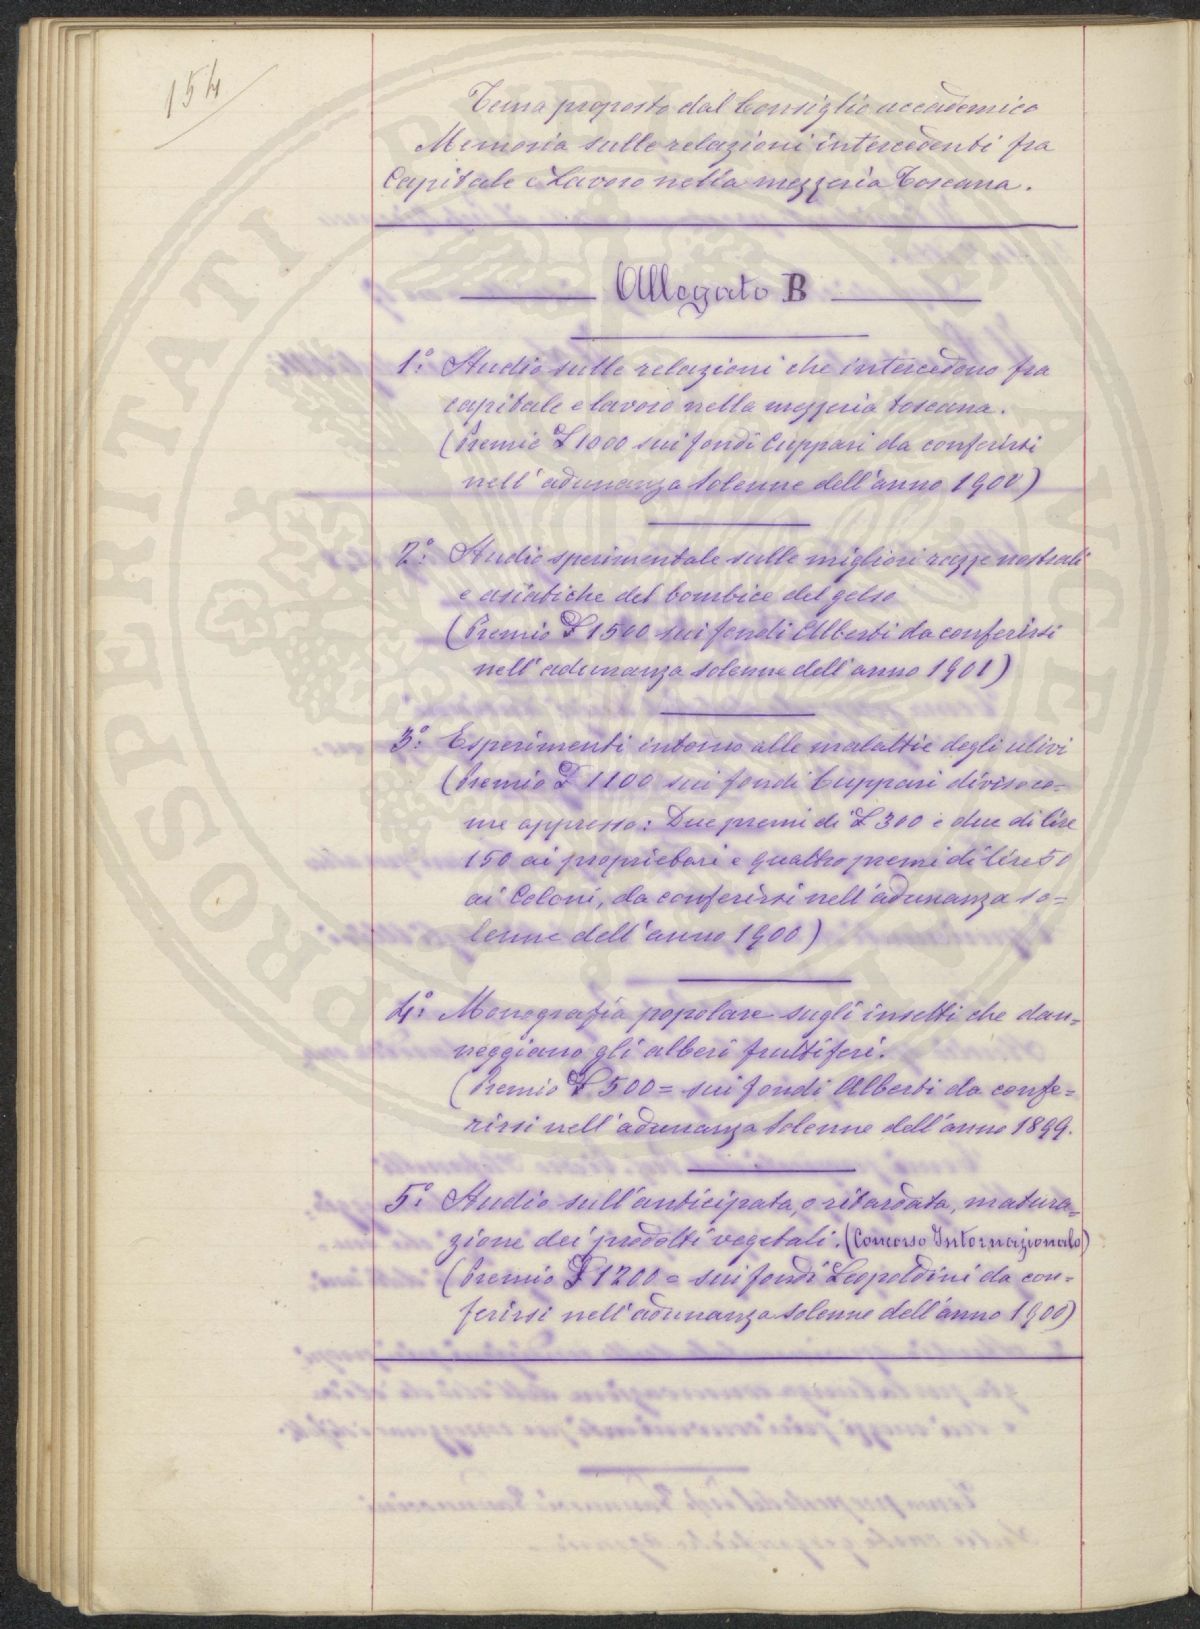 154
Tema proposto dal Consiglio accademico
Memoria sulle relazioni intercedenti fra
Capitale e Lavoro nella mezzeria Toscana.
Allegato B
1º: Studio sulle relazioni che intercedono fra
capitale e lavoro nella mezzeria toscana.
(Premio £ 1000 sui fondi Cuppari da conferirsi
nell'adunanza solenne dell'anno 1900)
2º: Studio sperimentale sulle migliori razze nostrali
e asiatiche del bombice del gelso
(Premio £ 1500 sui fondi Alberti da conferirsi
nell'adunanza solenne dell'anno 1901)
3º: Esperimenti intorno alle malattie degli ulivi
(Premio £ 1100 sui fondi Cuppari diviso co=
me appresso: Due premi di £ 300 e due di lire
150 ai proprietari e quattro premi di lire 50
ai Coloni, da conferirsi nell'adunanza so=
lenne dell'anno 1900)
4º: Monografia popolare sugli insetti che dan=
neggiano gli alberi fruttiferi.
(Premio £ 500= sui fondi Alberti da confe=
rirsi nell'adunanza solenne dell'anno 1899.
5º: Studio sull'anticipata, o ritardata, matura=
zione dei prodotti vegetali. (Concorso Internazionale)
(Premio £ 1200= sui fondi Leopoldini da con=
ferirsi nell'adunanza solenne dell'anno 1900)
PROSPERITATI PUBLICAE AUGENDAE